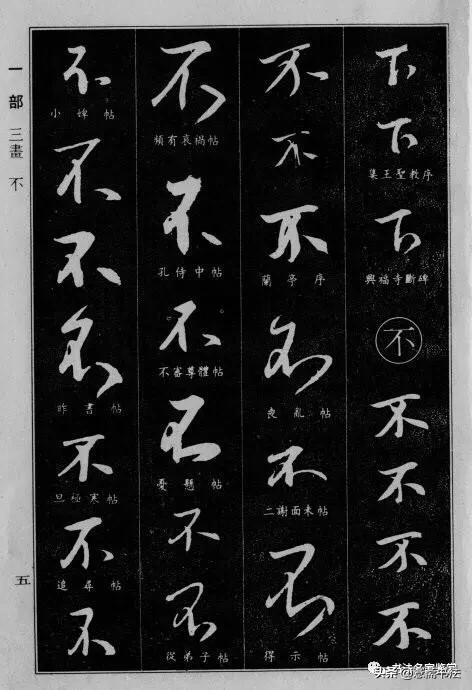 下
下
集王聖教序
下
興福寺斷碑
不
不
不
不
不
不
不
不
蘭亭序
不
喪亂帖
不
二謝面未帖
不
得示帖
不
頻有哀禍帖
不
孔侍中帖
不
不審尊體帖
不
憂懸帖
不
不
從弟子帖
不
小婢帖
不
不
不
昨書帖
不
旦極寒帖
不
追尋帖
不
一部 三畫 不
五